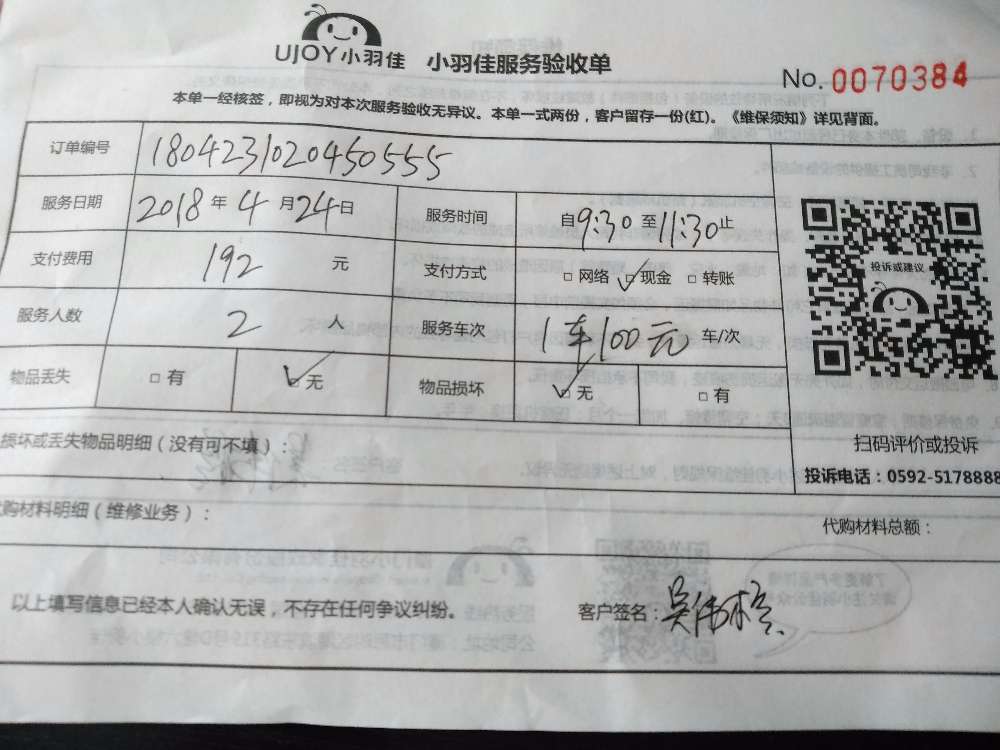 UJOY小羽佳 小羽佳服务验收单
No. 0070384
本单一经核签，即视为对本次服务验收无异议。本单一式两份，客户留存一份(红)。《维保须知》详见背面。
订单编号 1804231020450555
服务日期 2018年4月24日 服务时间 自9:30至11:30止
支付费用 192元 支付方式 □网络 ☑现金 □转账
投诉或建议
服务人数 2人 服务车次 1车100元 车/次
物品丢失 □有 ☑无 物品损坏 ☑无 □有
损坏或丢失物品明细（没有可不填）：
扫码评价或投诉
投诉电话：0592-5178888
代购材料明细（维修业务）：
代购材料总额：
以上填写信息已经本人确认无误，不存在任何争议纠纷。 客户签名：吴